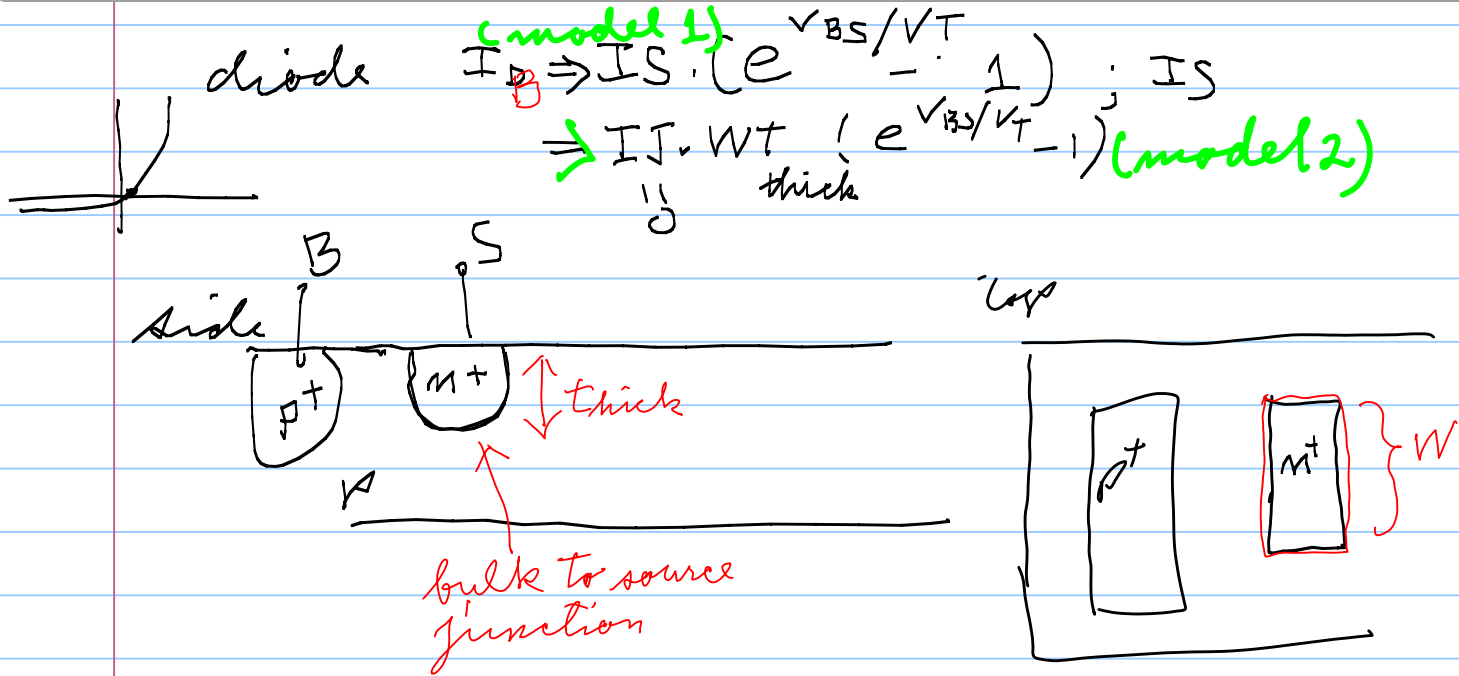 (model 1)
diode I_B ⇒ IS · (e^{VBS/VT} - 1) ; IS
⇒ IJ · WT (e^{VBS/VT} - 1) (model 2)
thick
B
S
side
top
p+
n+
thick
p+
n+
W
P
bulk to source
junction